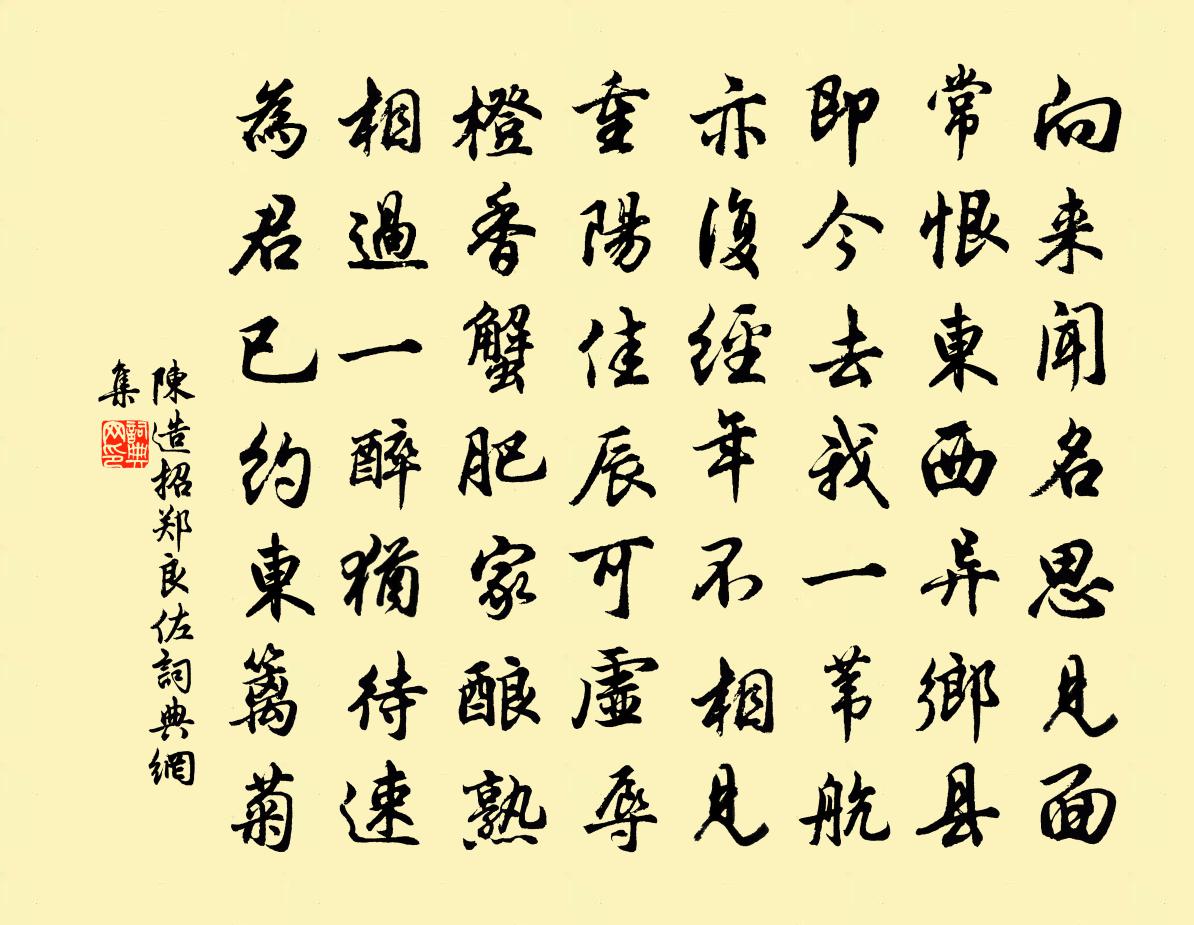 向来闻名思見面
常恨東西异鄉县
即今去我一苇航
亦復經年不相見
重陽佳辰可虚辱
橙香蟹肥家酿熟
相過一醉猶待速
為君已約東篱菊
陳造招郑良佐詞典網
集
詞典
网印